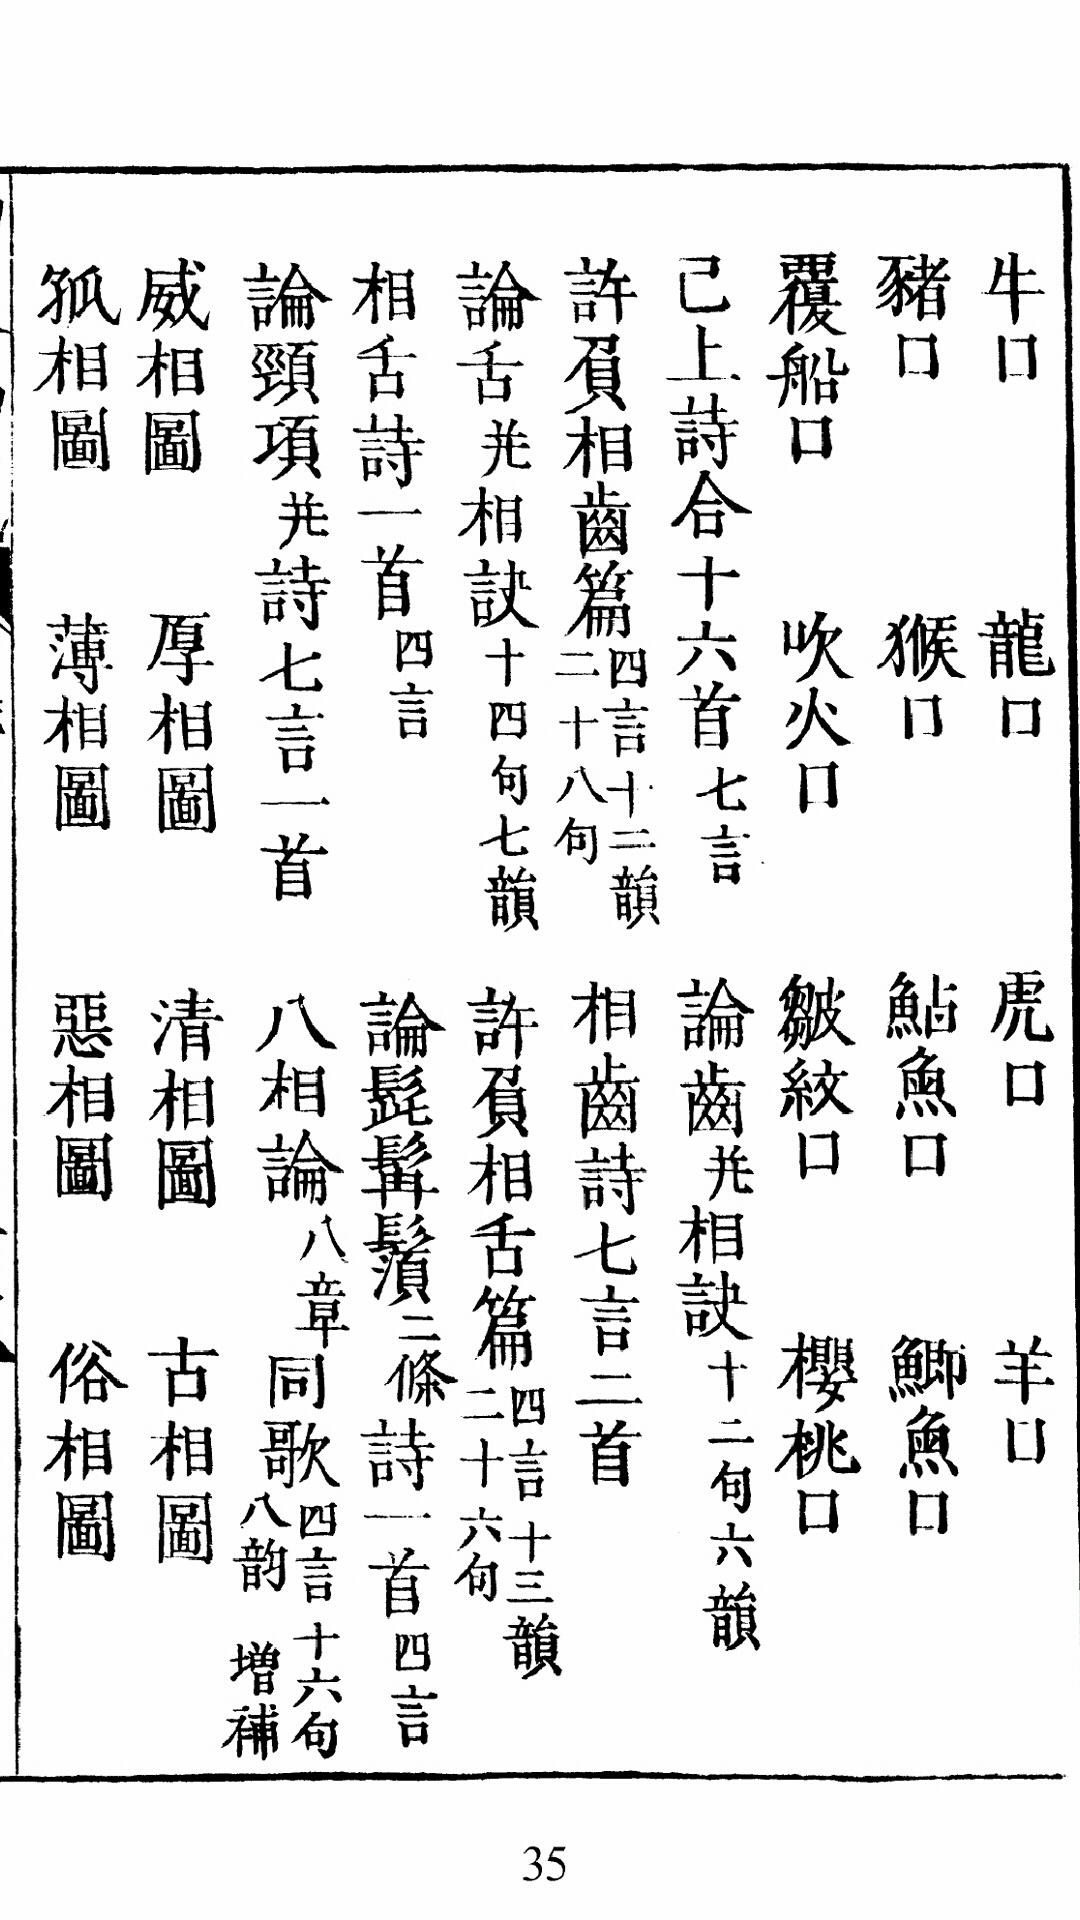 牛口　龍口　虎口　羊口
豬口　猴口　鮎魚口　鯽魚口
覆船口　吹火口　皺紋口　櫻桃口
己上詩合十六首七言　論齒并相訣十二句六韻
許負相齒篇四言十二韻二十八句　相齒詩七言二首
論舌并相訣十四句七韻　許負相舌篇四言十三韻二十六句
相舌詩一首四言　論髭髯鬚二條詩一首四言
論頸項并詩七言一首　八相論八章同歌四言十六句八韵 增補
威相圖　厚相圖　清相圖　古相圖
孤相圖　薄相圖　惡相圖　俗相圖
35